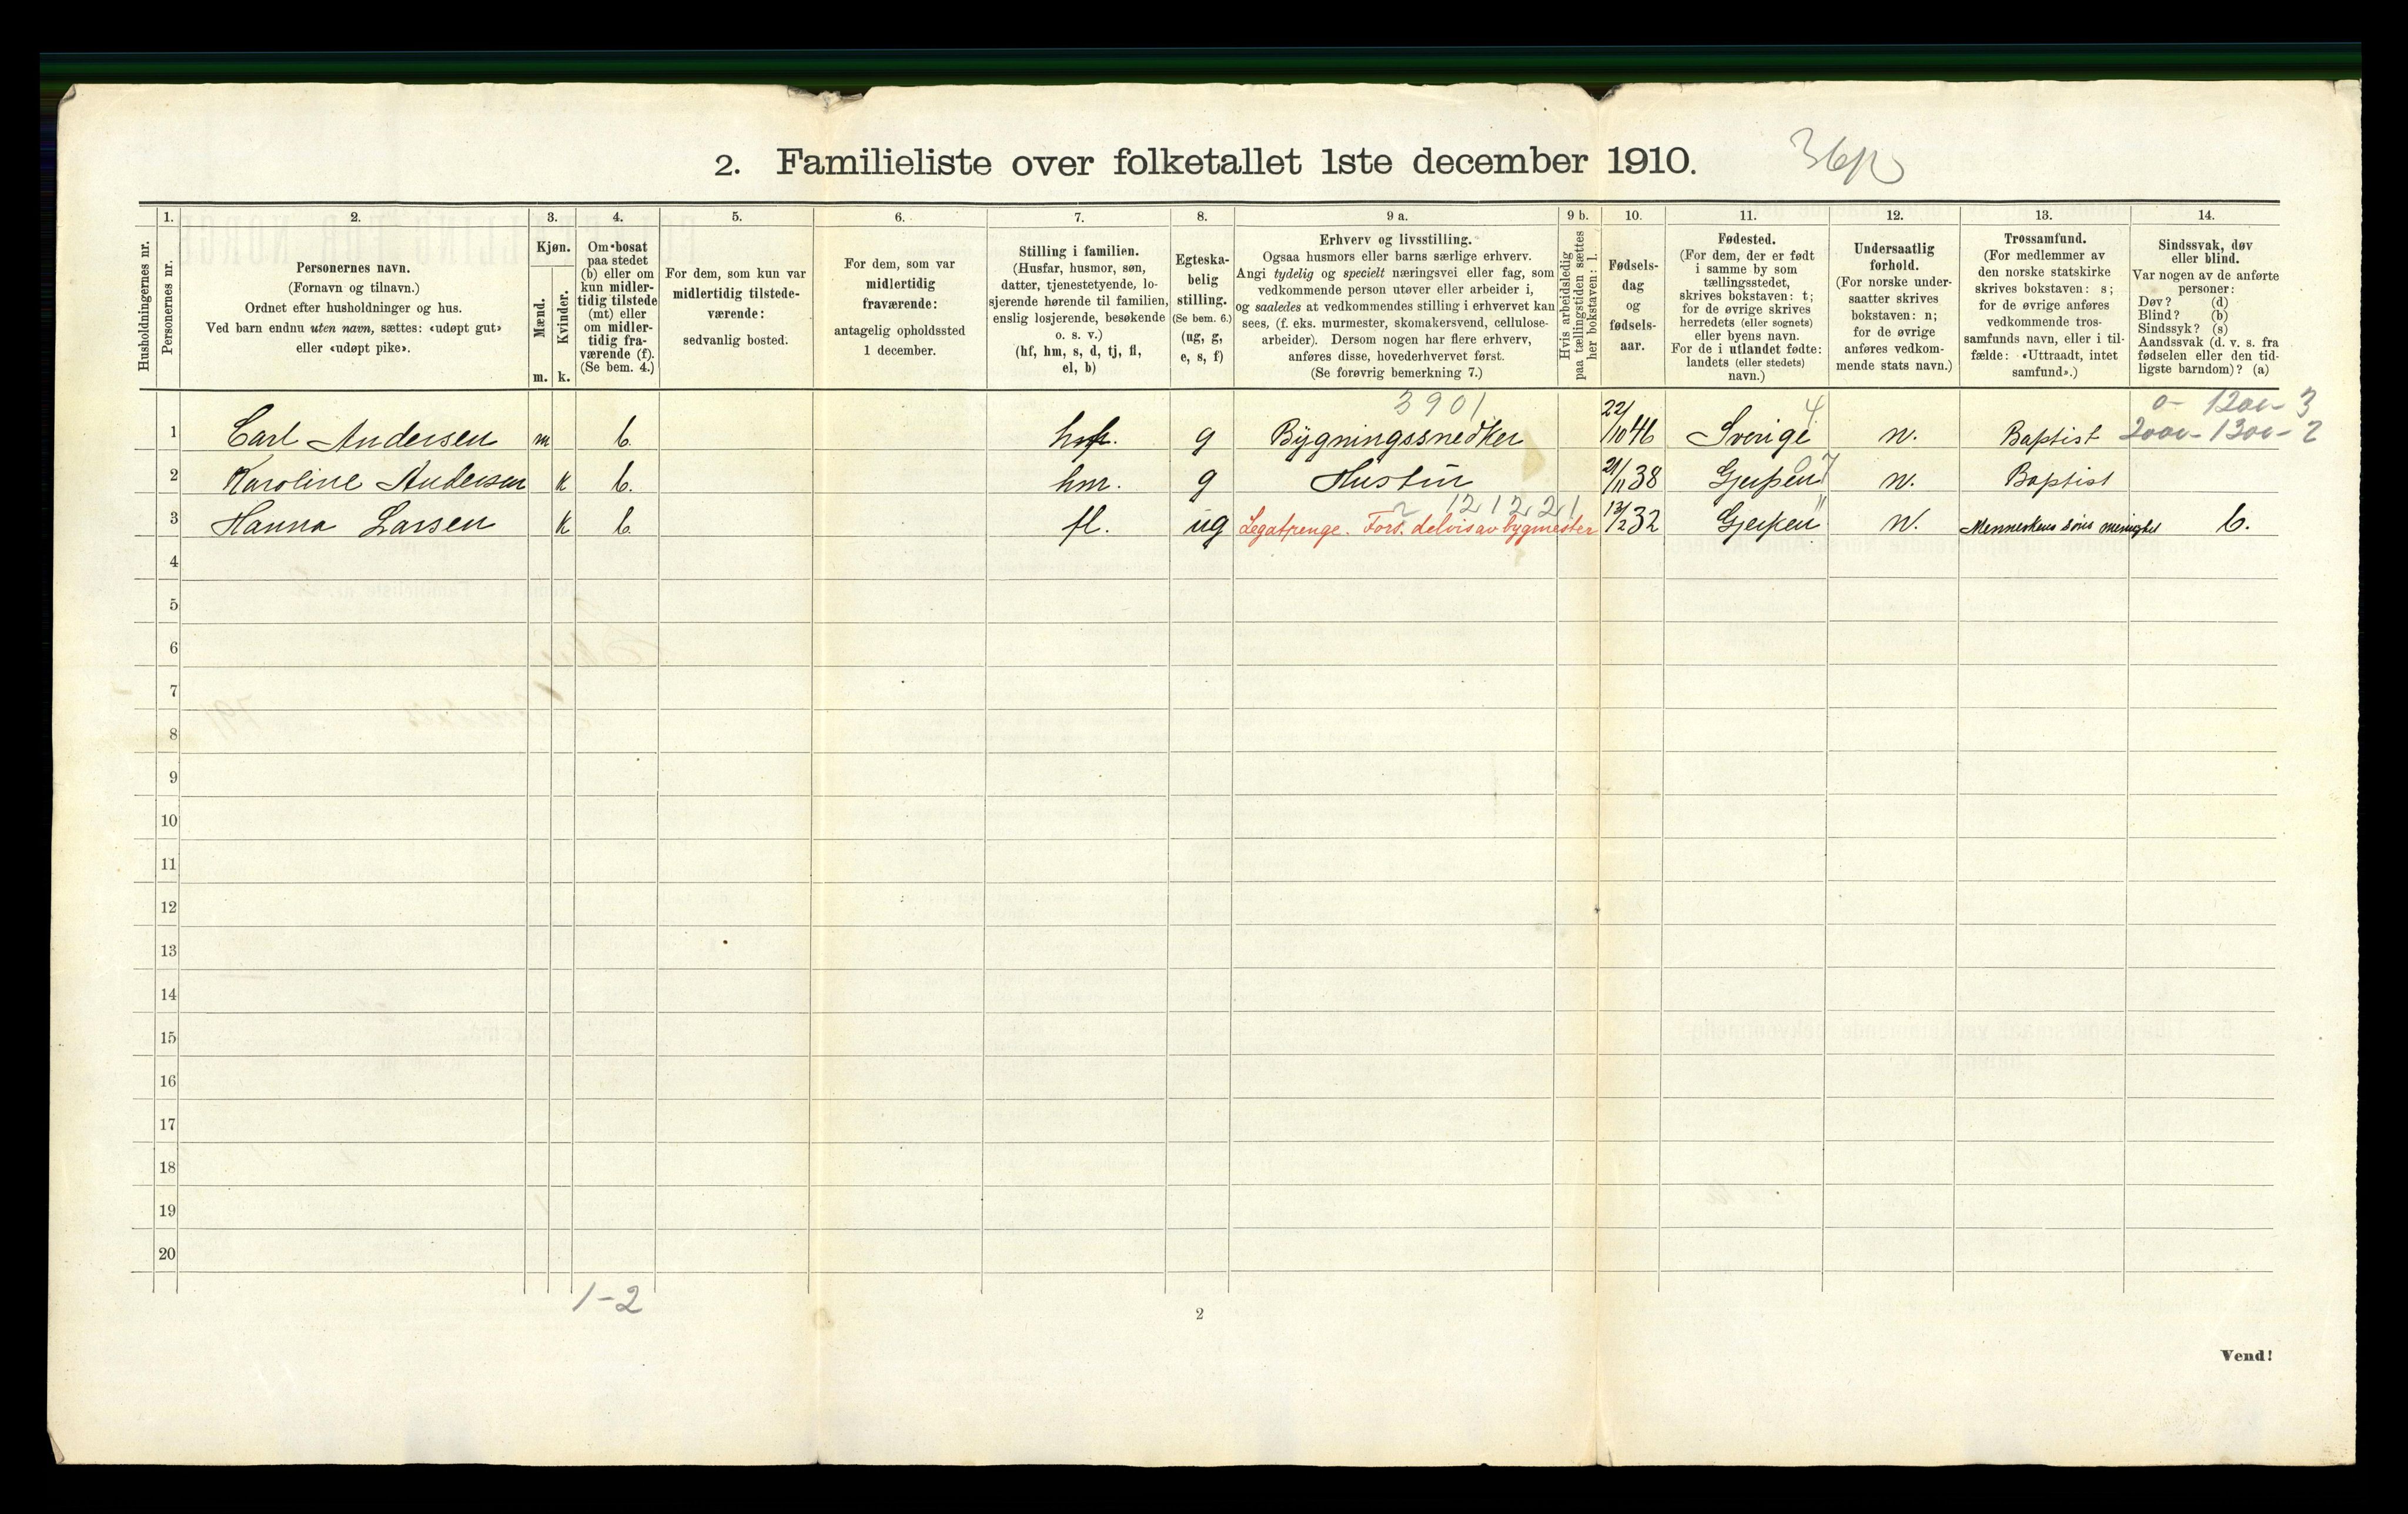 2. Familieliste over folketallet 1ste december 1910.
Husholdningernes nr.
1.
Personernes nr.
2.
Personernes navn.
(Fornavn og tilnavn.)
Ordnet efter husholdninger og hus.
Ved barn endnu uten navn, sættes: «udøpt gut»
eller «udøpt pike».
3.
Kjøn.
Mænd.
m.
Kvinder.
k.
4.
Om bosat
paa stedet
(b) eller om
kun midler-
tidig tilstede
(mt) eller
om midler-
tidig fra-
værende (f).
(Se bem. 4.)
5.
For dem, som kun var
midlertidig tilstede-
værende:
sedvanlig bosted.
6.
For dem, som var
midlertidig
fraværende:
antagelig opholdssted
1 december.
7.
Stilling i familien.
(Husfar, husmor, søn,
datter, tjenestetyende, lo-
sjerende hørende til familien,
enslig losjerende, besøkende
o. s. v.)
(hf, hm, s, d, tj, fl,
el, b)
8.
Egteska-
belig
stilling.
(Se bem. 6.)
(ug, g,
e, s, f)
9 a.
Erhverv og livsstilling.
Ogsaa husmors eller barns særlige erhverv.
Angi tydelig og specielt næringsvei eller fag, som
vedkommende person utøver eller arbeider i,
og saaledes at vedkommendes stilling i erhvervet kan
sees, (f. eks. murmester, skomakersvend, cellulose-
arbeider). Dersom nogen har flere erhverv,
anføres disse, hovederhvervet først.
(Se forøvrig bemerkning 7.)
9 b.
Hvis arbeidsledig
paa tællingstiden sættes
her bokstaven: l.
10.
Fødsels-
dag
og
fødsels-
aar.
11.
Fødested.
(For dem, der er født
i samme by som
tællingsstedet,
skrives bokstaven: t;
for de øvrige skrives
herredets (eller sognets)
eller byens navn.
For de i utlandet fødte:
landets (eller stedets)
navn.)
12.
Undersaatlig
forhold.
(For norske under-
saatter skrives
bokstaven: n;
for de øvrige
anføres vedkom-
mende stats navn.)
13.
Trossamfund.
(For medlemmer av
den norske statskirke
skrives bokstaven: s;
for de øvrige anføres
vedkommende tros-
samfunds navn, eller i til-
fælde: «Uttraadt, intet
samfund».)
14.
Sindssvak, døv
eller blind.
Var nogen av de anførte
personer:
Døv? (d)
Blind? (b)
Sindssyk? (s)
Aandssvak (d. v. s. fra
fødselen eller den tid-
ligste barndom)? (a)
3901 4 0- 1200- 3
1 Carl Andersen m b. hf. g Bygningssnedker 22/10 46 Sverige n. Baptist 2000- 1300- 2
2 Karoline Andersen k b. hm. g Hustru 21/11 38 Gjerpen n. Baptist
121221
3 Hanna Larsen k b. fl. ug Legatpenge. Fors. delvis av bygmester 13/2 32 Gjerpen n. Menneskens søns menighet b.
4
5
6
7
8
9
10
11
12
13
14
15
16
17
18
19
20
1-2
2
Vend!